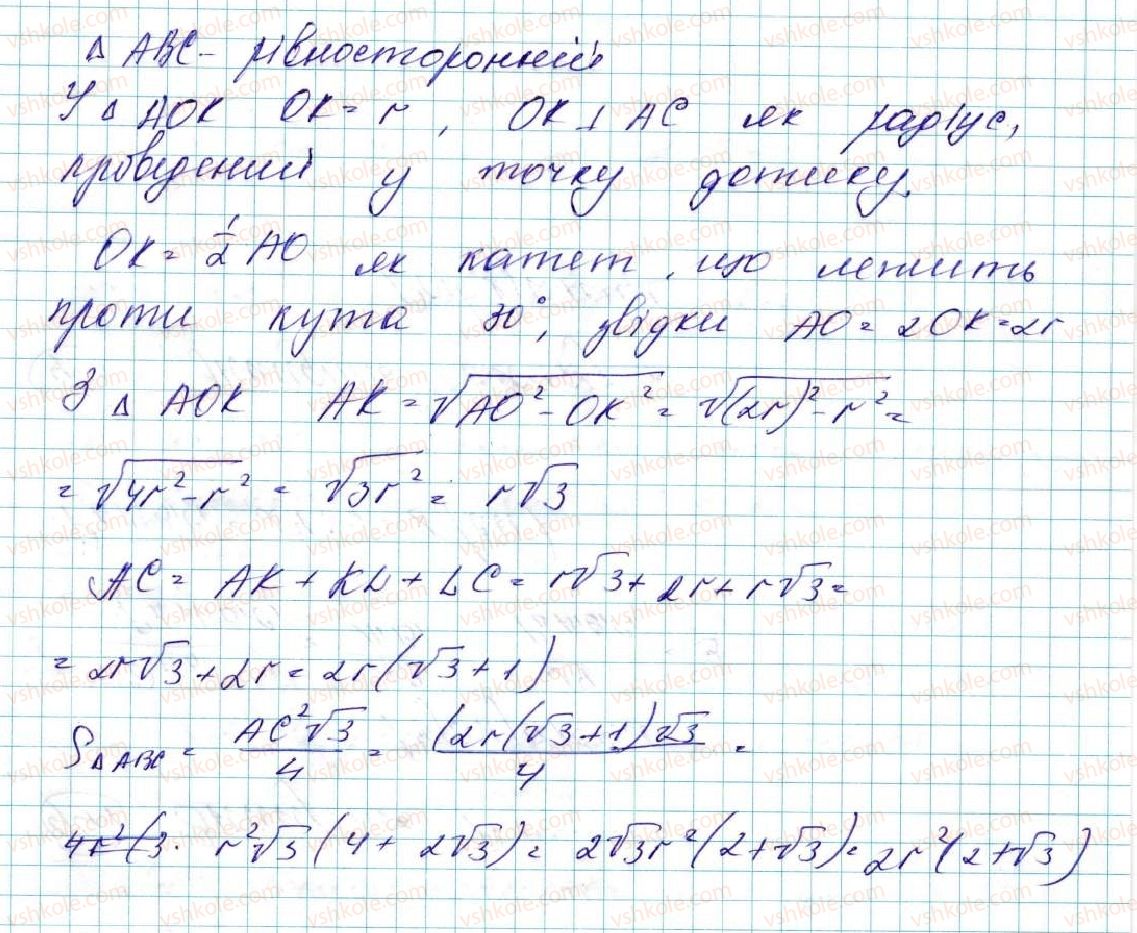 △ ABC - рівносторонній
У △ AOK OK = r, OK ⊥ AC як радіус,
проведений у точку дотику.
OK = 1/2 AO як катет, що лежить
проти кута 30°, звідки AO = 2OK = 2r
З △ AOK AK = √(AO² - OK²) = √((2r)² - r²) =
= √(4r² - r²) = √(3r²) = r√3
AC = AK + KL + LC = r√3 + 2r + r√3 =
= 2r√3 + 2r = 2r(√3 + 1)
S△ABC = AC²√3/4 = (2r(√3 + 1)√3/4 =
4r²(3. r²√3(4 + 2√3) = 2√3r²(2 + √3) = 2r²(2 + √3)